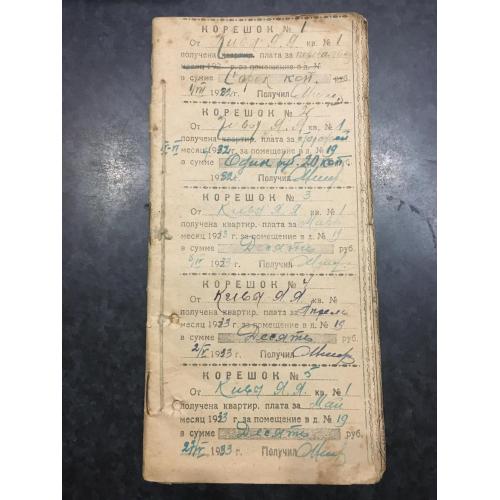 КОРЕШОК № 1
От Кива Я. Я. кв. № 1
получена квартир. плата за
месяц 192 г. за помещение в д. №
в сумме Сорок коп. руб.
1932 г. Получил
КОРЕШОК № 2
От Кива Я. Я. кв. № 1
получена квартир. плата за
IV-VI месяц 1932 г. за помещение в д. № 19
в сумме Один руб. 20 коп.
1932 г. Получил
КОРЕШОК № 3
От Кива Я. Я. кв. № 1
получена квартир. плата за
месяц 1933 г. за помещение в д. № 19
в сумме Десять руб.
1933 г. Получил
КОРЕШОК № 4
От Кива Я. Я. кв. №
получена квартир. плата за Апрель
месяц 1933 г. за помещение в д. № 19
в сумме Десять руб.
2/V 1933 г. Получил
КОРЕШОК № 5
От Кива Я. Я. кв. № 1
получена квартир. плата за Май
месяц 1933 г. за помещение в д. № 19
в сумме Десять руб.
1933 г. Получил